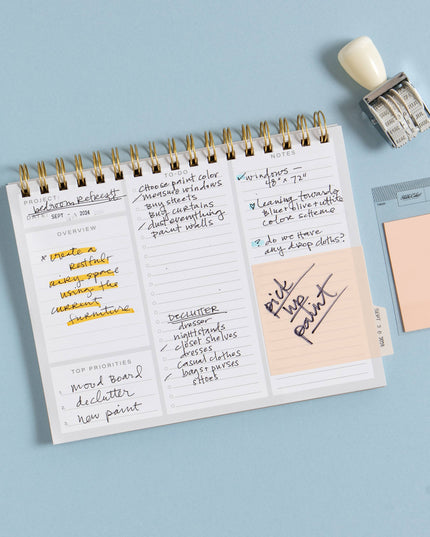 PROJECT
bedroom refresh
DATE SEPT 2024
OVERVIEW
* create a
restful
airy space
using the
current
furniture
TOP PRIORITIES
1. mood Board
2. declutter
3. new paint
TO-DO
choose paint color
measure windows
Buy sheets
Buy curtains
dust everything
paint walls
DECLUTTER
dresser
nightstands
closet shelves
dresses
casual clothes
bags + purses
shoes
NOTES
windows —
48" x 72"
leaning towards
blue + olive + white
color scheme
? do we have
any drop cloths?
pick
up
paint